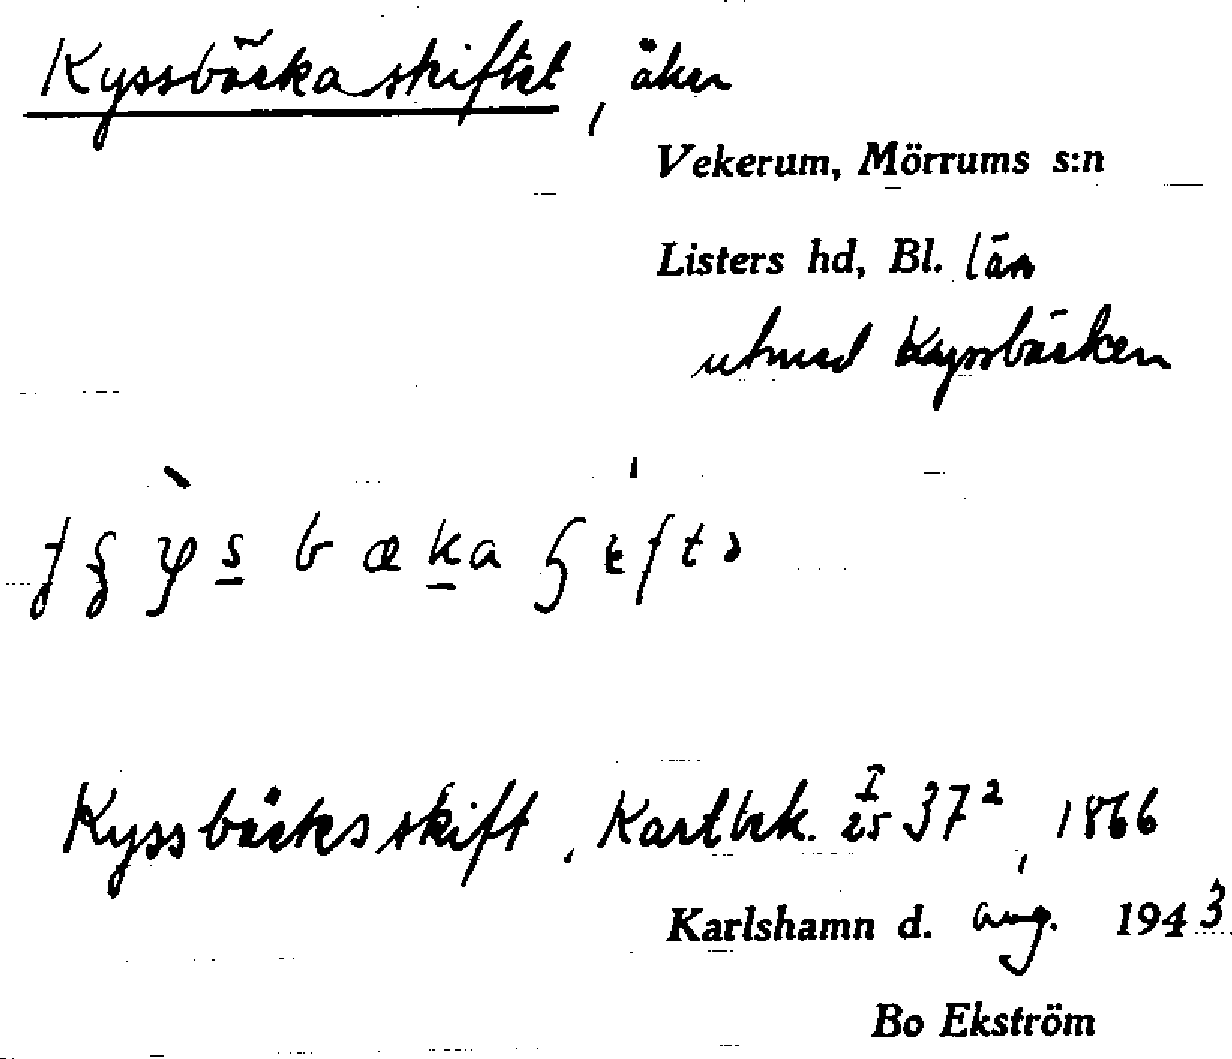 Kyssbäckaskiftet, åker
Vekerum, Mörrums s:n
Listers hd, Bl. län
utmed Kyssbäcken
Kyssbäcksskift, Kartbek. I/25 37², 1866
Karlshamn d. aug. 1943
Bo Ekström